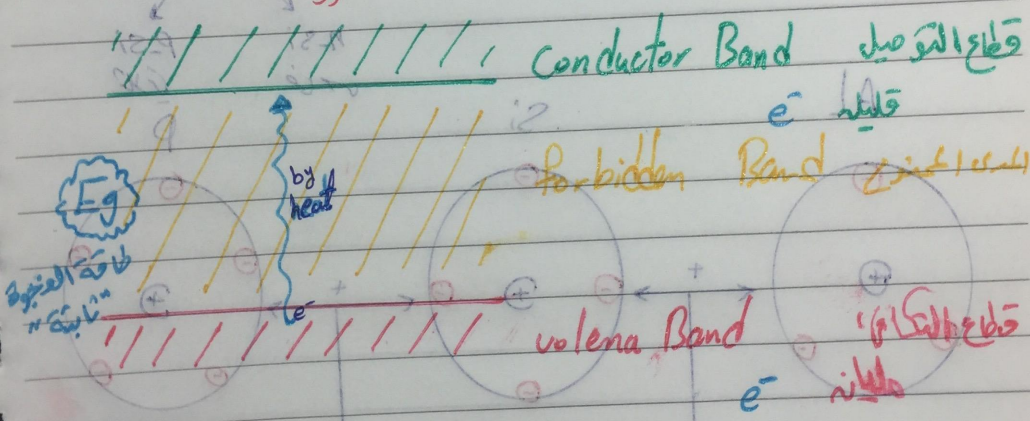 Conductor Band قطاع التوصيل
e⁻ قليله
by heat
Forbidden Band
Eg
طاقة الفجوة
"ثابتة"
e⁻
volena Band قطاع التكافؤ
e⁻ مليانه